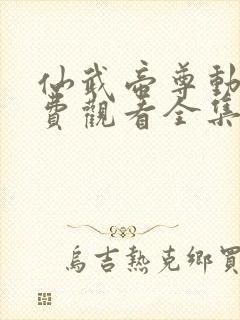 仙武帝尊動
費觀看全集
烏吉熱克鄉買